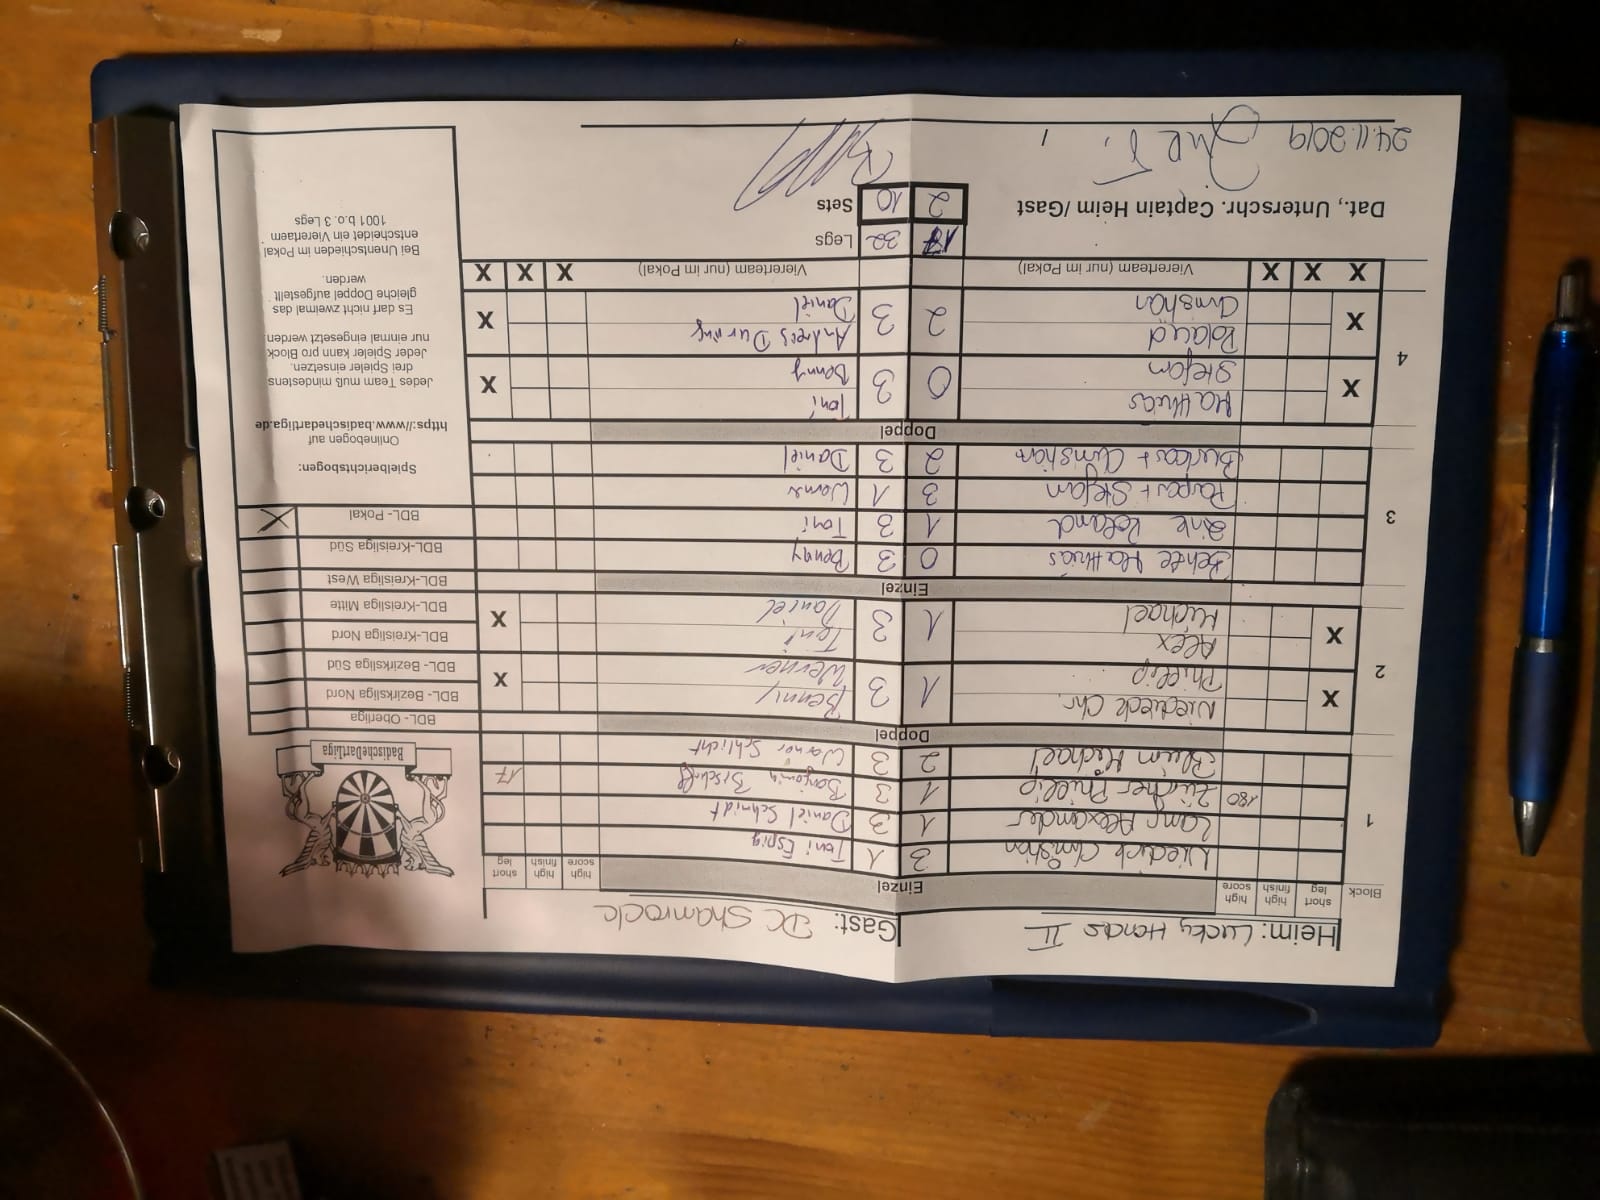 Heim: Lucky Hands II Gast: DC Shamrock
Block short leg high finish high score Einzel high score high finish short leg
1 Niedieck Christian 3 1 Toni Espig
Lamp Alexander 1 3 Daniel Schmidt
180 Zürcher Phillip 1 3 Benjamin Bischoff 17
Blum Michael 2 3 Werner Schlicht
Doppel
2 X Niedieck Chr. 1 3 Benny X
Phillip Werner
X Alex 1 3 Toni X
Michael Daniel
Einzel
3 Mathias 0 3 Benny
Zink Roland 1 3 Toni
Papert Stefan 3 1 Werner
Christian 2 3 Daniel
Doppel
4 X Matthias 0 3 Toni X
Stefan Benny
X Roland 2 3 Andrees During X
Christian Daniel
X X X Viererteam (nur im Pokal) Viererteam (nur im Pokal) X X X
17 32 Legs
Dat., Unterschr. Captain Heim / Gast 2 10 Sets
24.11.2019
BadischeDartLiga
BDL - Oberliga
BDL - Bezirksliga Nord
BDL - Bezirksliga Süd
BDL-Kreisliga Nord
BDL-Kreisliga Mitte
BDL-Kreisliga West
BDL-Kreisliga Süd
BDL - Pokal X
Spielberichtsbogen:
Onlinebogen auf
https://www.badischedartliga.de
Jedes Team muß mindestens
drei Spieler einsetzen.
Jeder Spieler kann pro Block
nur einmal eingesetzt werden.
Es darf nicht zweimal das
gleiche Doppel aufgestellt
werden.
Bei Unentschieden im Pokal
entscheidet ein Vierertaem
1001 b.o. 3 Legs